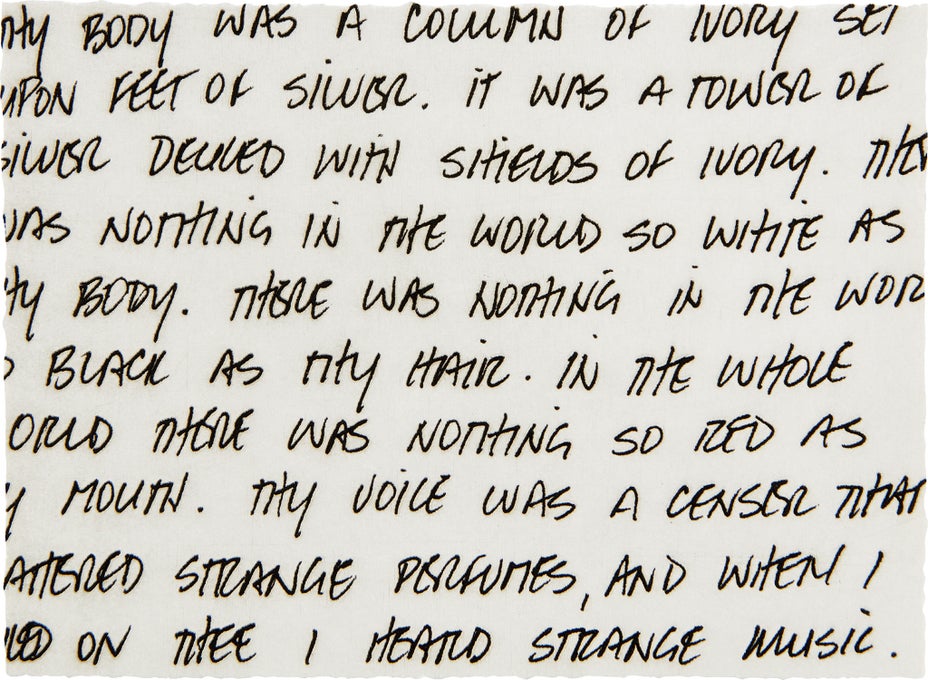 THY BODY WAS A COLUMN OF IVORY SET
UPON FEET OF SILVER. IT WAS A TOWER OF
SILVER DECKED WITH SHIELDS OF IVORY. THER
WAS NOTHING IN THE WORLD SO WHITE AS
HY BODY. THERE WAS NOTHING IN THE WOR
BLACK AS THY HAIR. IN THE WHOLE
ORLD THERE WAS NOTHING SO RED AS
Y MOUTH. THY VOICE WAS A CENSER THAT
ATTERED STRANGE PERFUMES, AND WHEN I
ON THEE I HEARD STRANGE MUSIC.